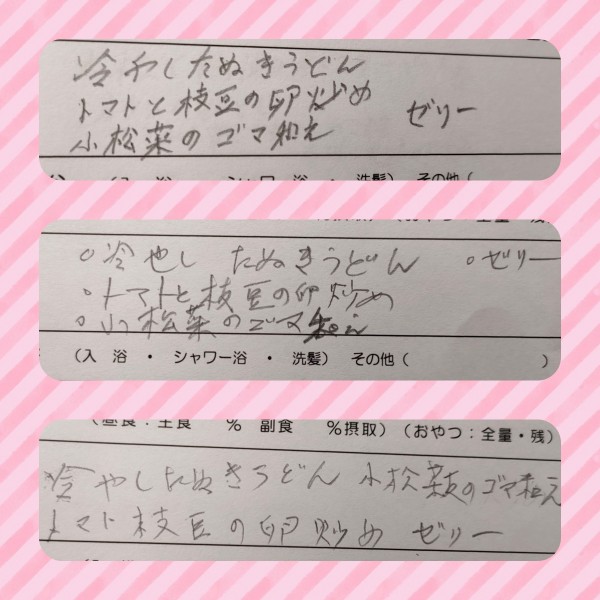 冷やしたぬきうどん
トマトと枝豆の卵炒め ゼリー
小松菜のゴマ和え
(入 浴 ・ シャワー浴 ・ 洗髪) その他(
○冷やし たぬきうどん ○ゼリー
○トマトと枝豆の卵炒め
○小松菜のゴマ和え
(入 浴 ・ シャワー浴 ・ 洗髪) その他( )
(昼食:主食 % 副食 %摂取) (おやつ:全量・残)
冷やしたぬきうどん 小松菜のゴマ和え
トマト枝豆の卵炒め ゼリー